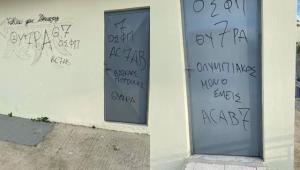 ΘΥ7ΡΑ Θ7
ΟΣΦΠ
AC7AB
7
ΟΣΦΠ
AC7AB
ΘΥ7ΡΑ
ΟΣΦΠ
ΘΥ7ΡΑ
ΟΛΥΜΠΙΑΚΟΣ
ΜΟΝΟ
ΕΜΕΙΣ
ACAB7